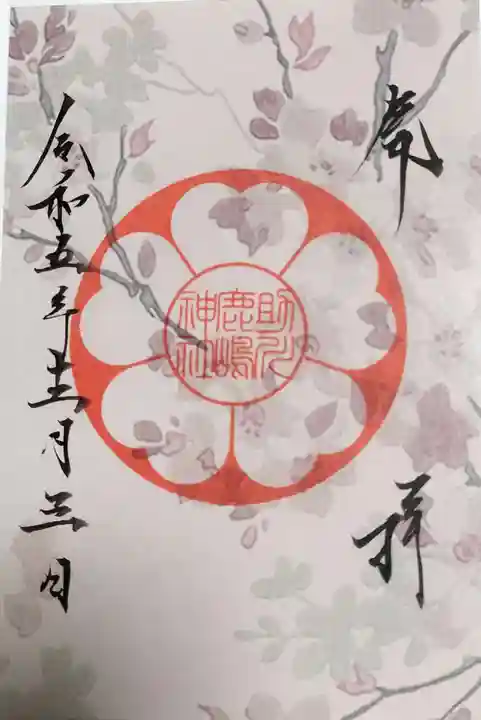 奉拝
助川
鹿嶋
神社
令和五年十二月三日